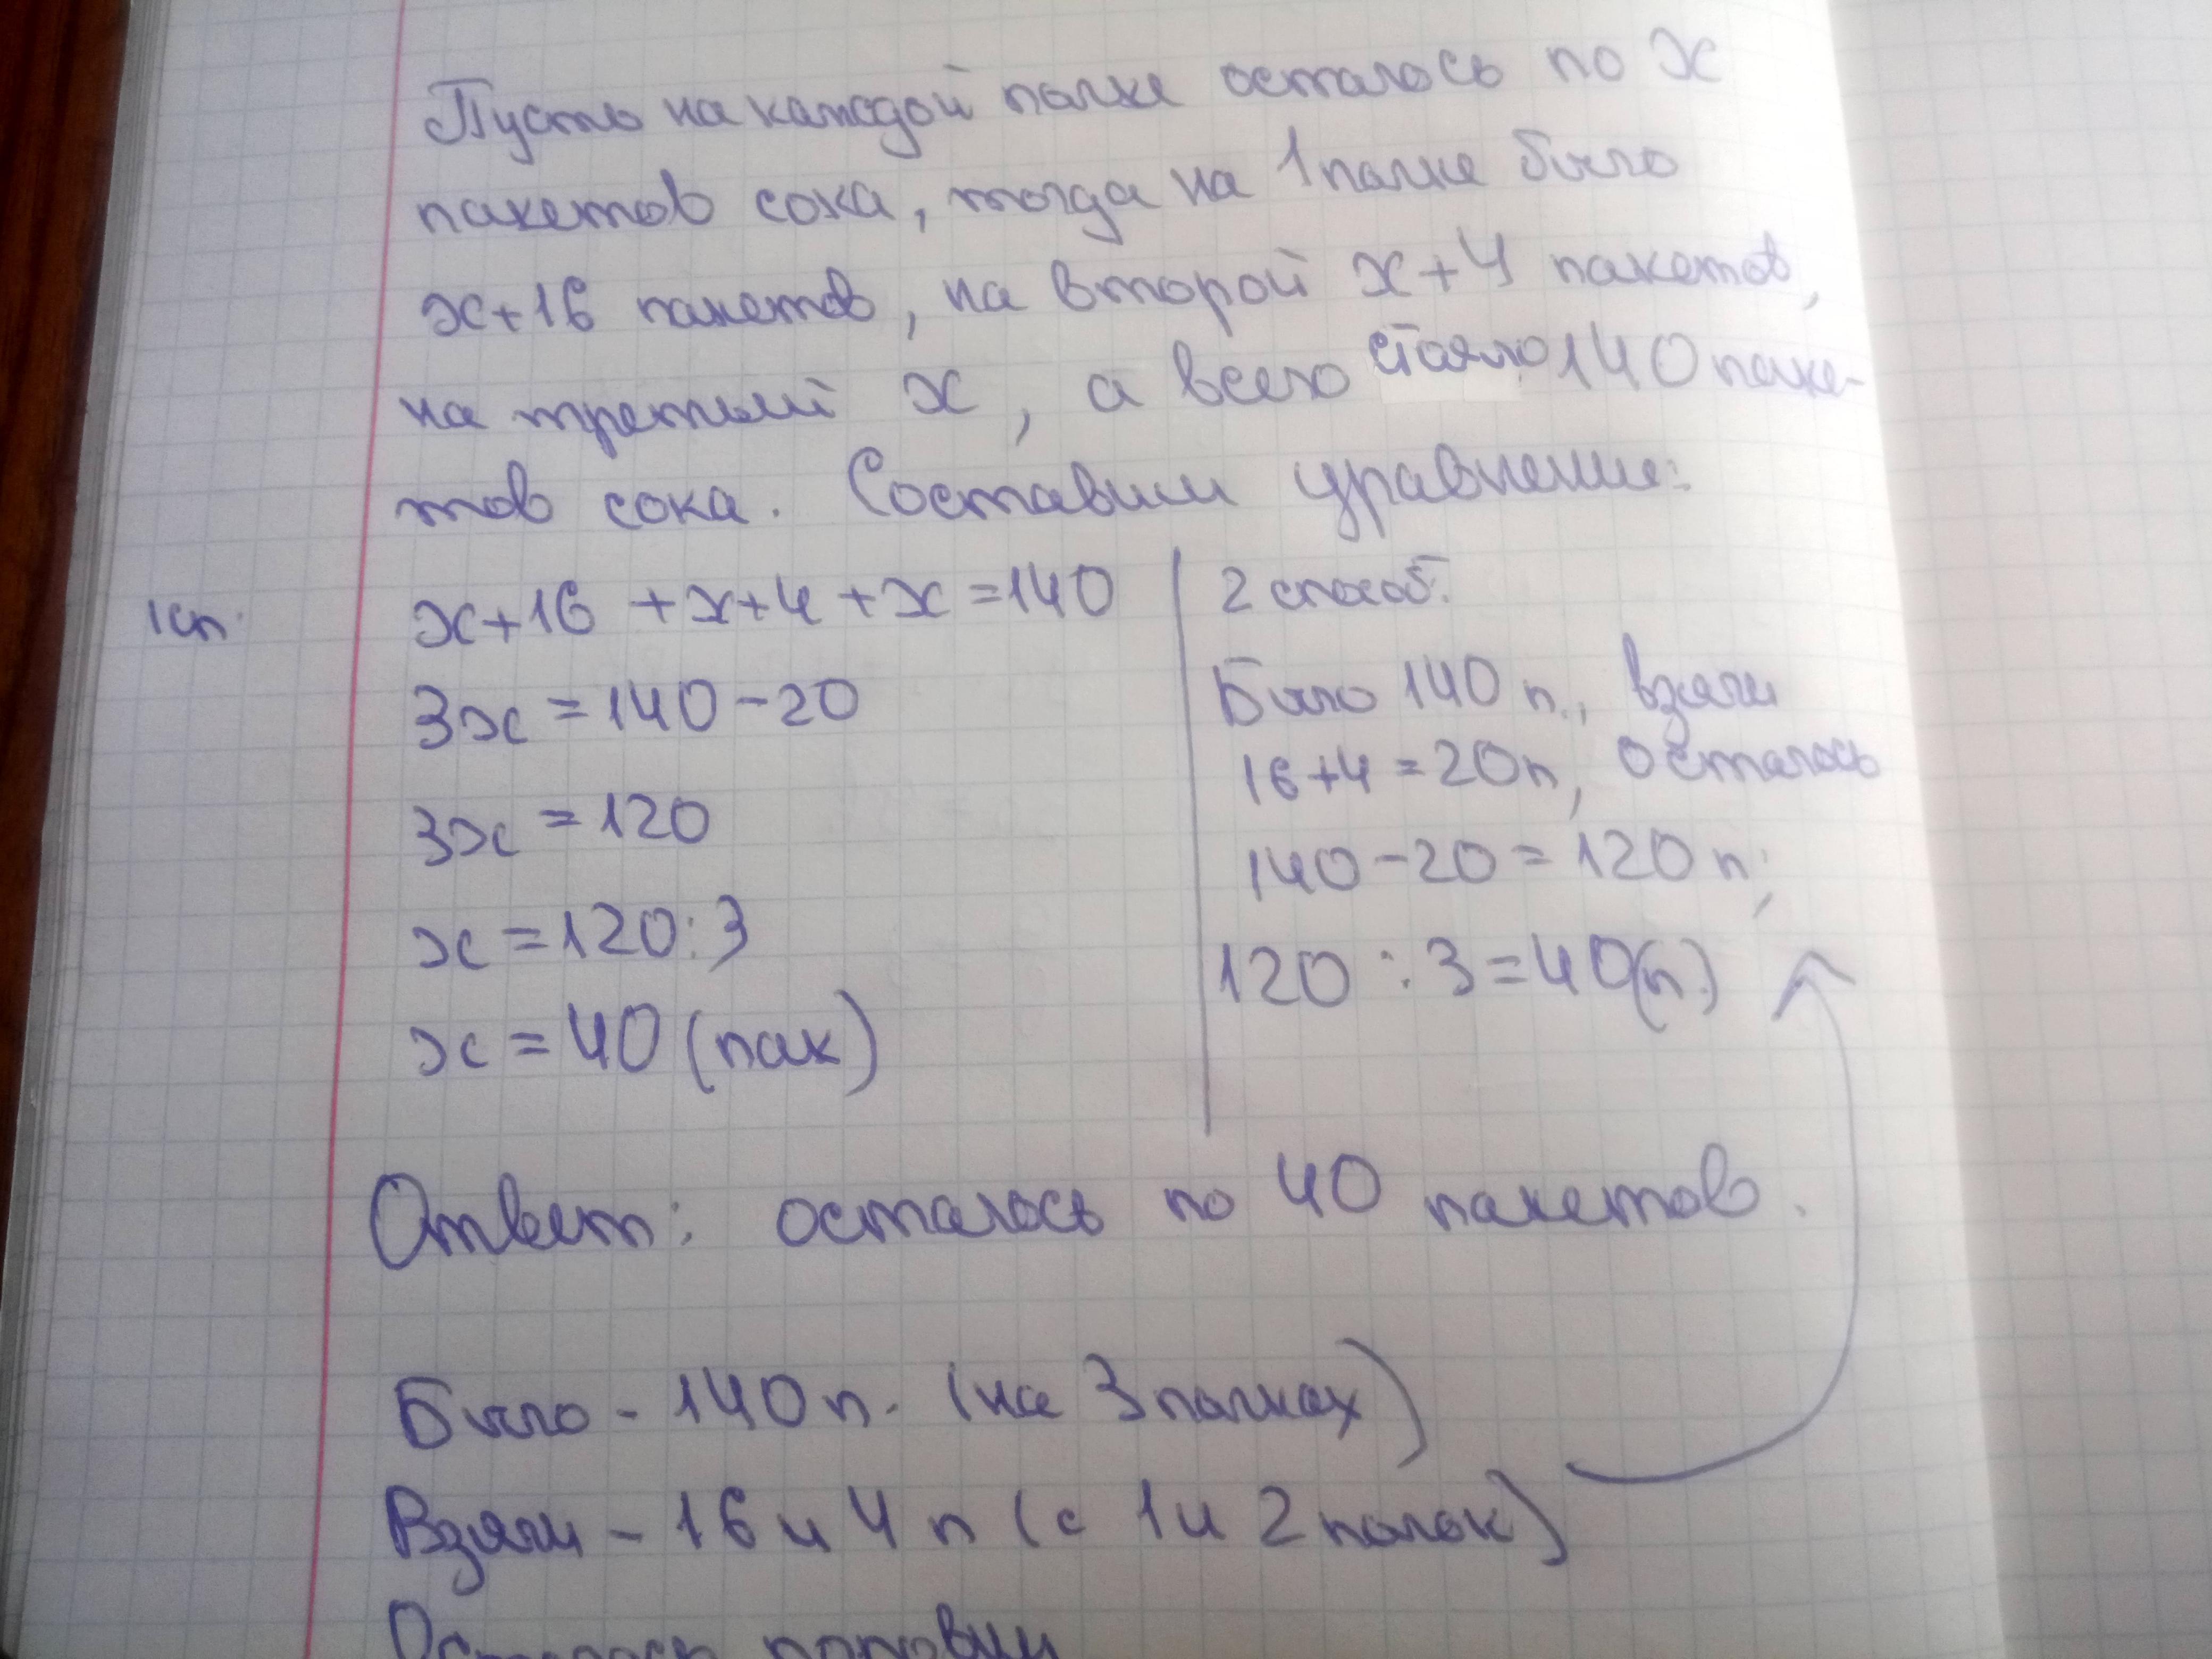 Пусть на каждой полке осталось по x
пакетов сока, тогда на 1 полке было
x+16 пакетов, на второй x+4 пакетов,
на третьей x, а всего стояло 140 паке-
тов сока. Составим уравнение:
1 сп.
x+16 +x+4 +x =140
3x =140-20
3x =120
x =120:3
x =40 (пак)
2 способ.
Было 140 п., взяли
16+4=20п, осталось
140-20=120п;
120 : 3=40(п.)
Ответ: осталось по 40 пакетов.
Было - 140 п. (на 3 полках)
Взяли - 16 и 4 п (с 1 и 2 полок)
Осталось поровну